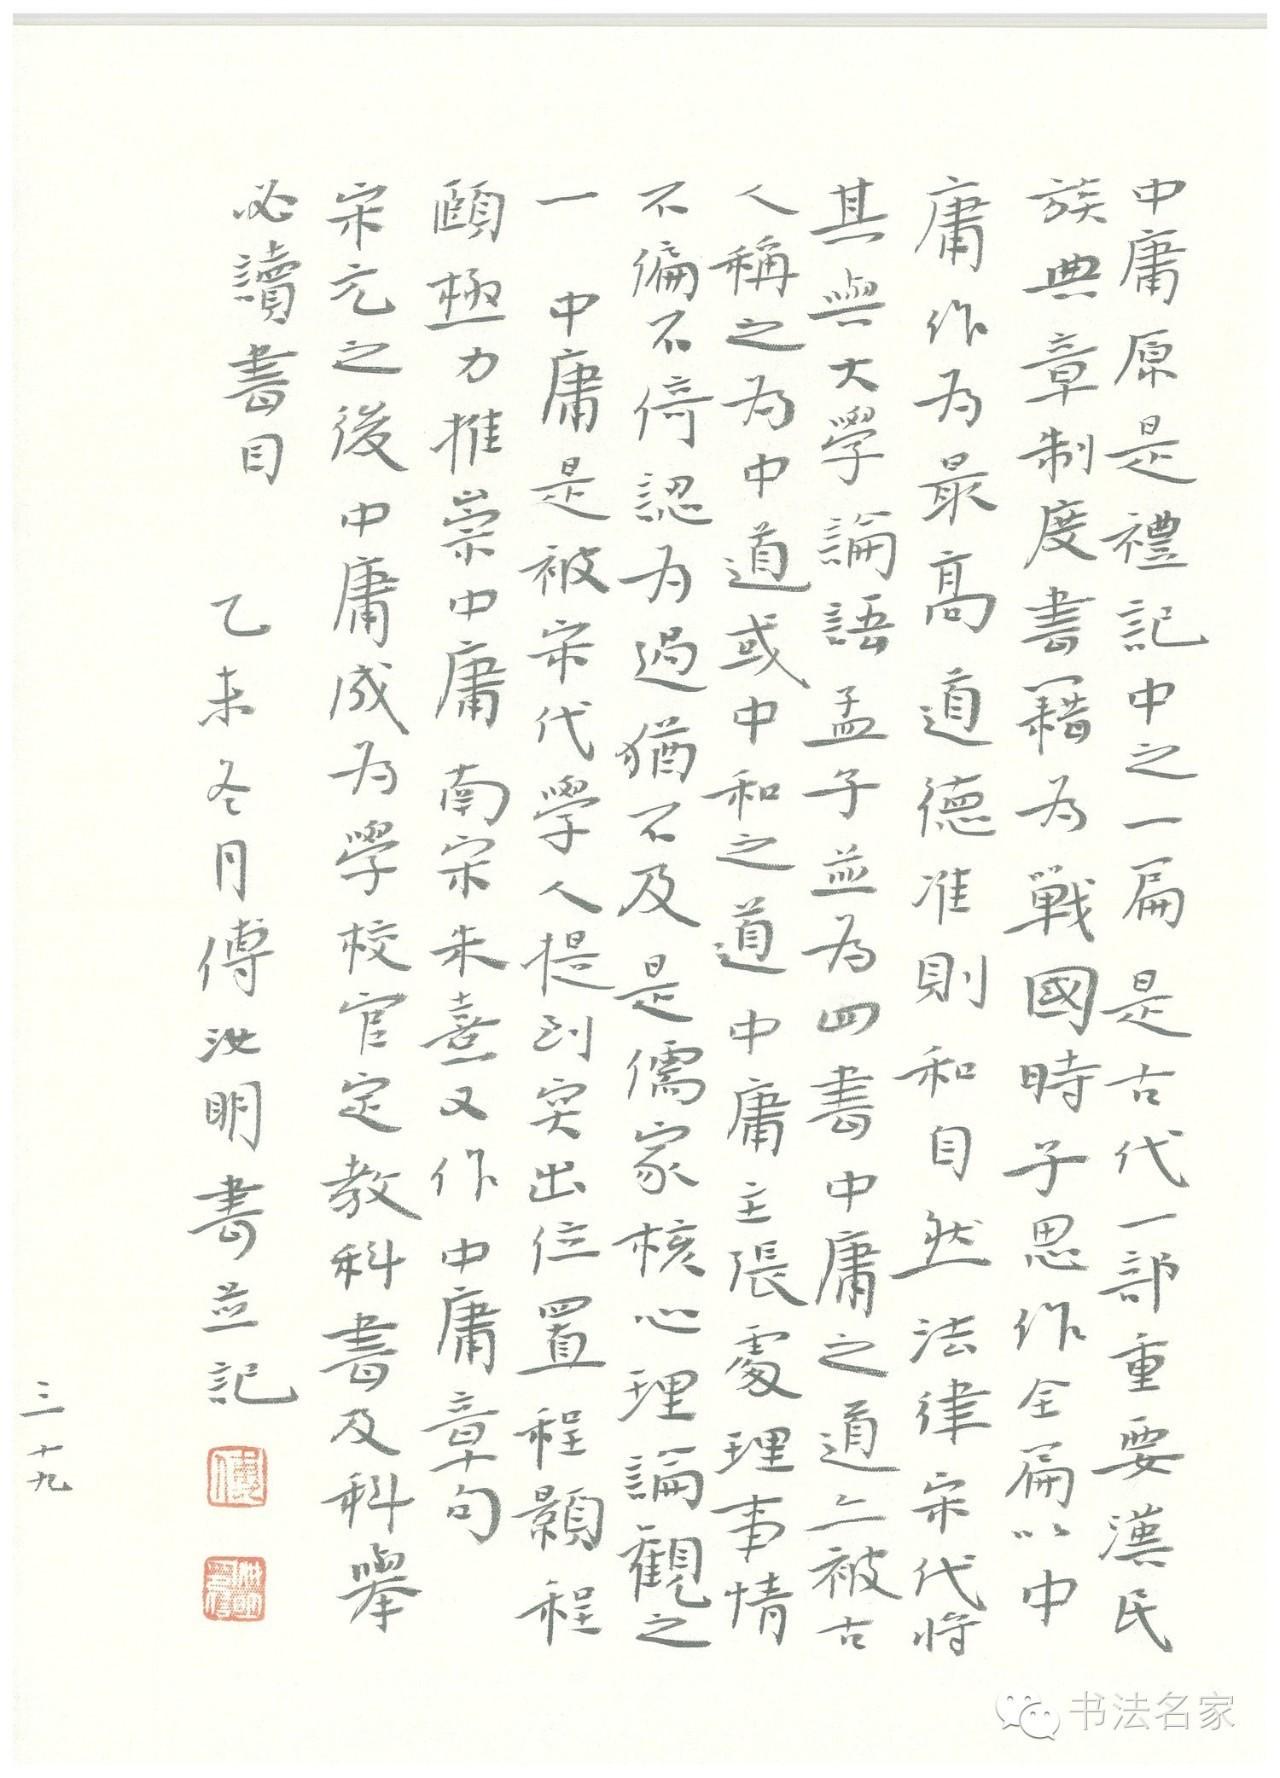 中庸原是禮記中之一扁是古代一部重要漢民
族典章制度書籍為戰國時子思作全扁以中
庸作為最高道德准則和自然法律宋代將
其與大學論語孟子並為四書中庸之道亦被古
人稱之為中道或中和之道中庸主張處理事情
不偏不倚認為過猶不及是儒家核心理論觀之
一 中庸是被宋代學人提到突出位置程顥程
頤極力推崇中庸南宋朱熹又作中庸章句
宋元之後中庸成為學校官定教科書及科舉
必讀書目 乙未冬月傅汝明書並記
三一十九
书法名家